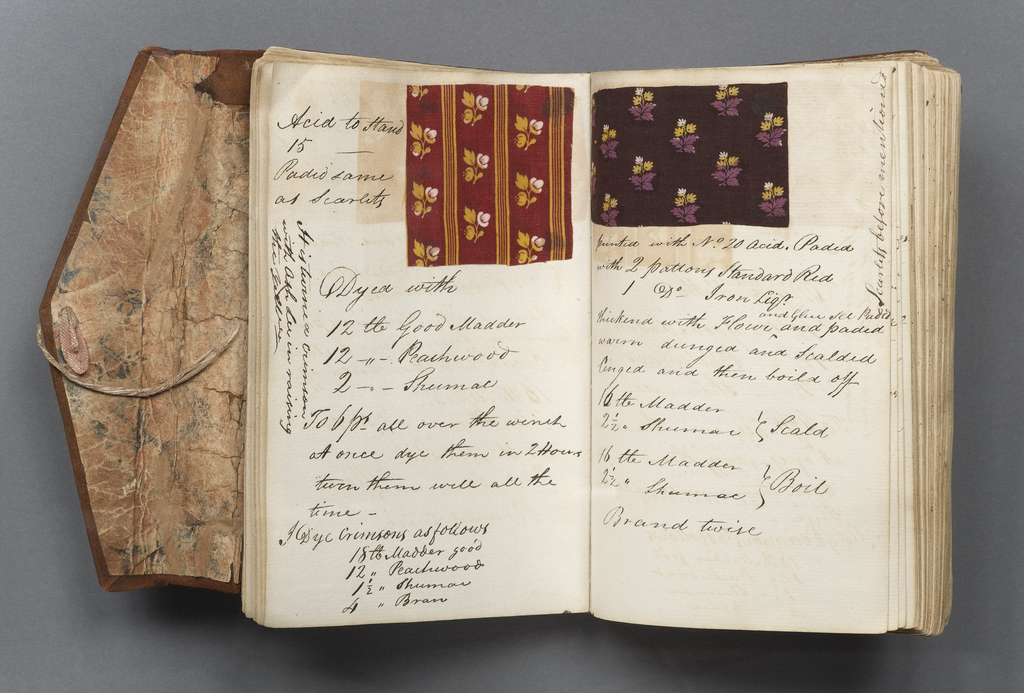 Acid to Stand
15 —
Padid same
as Scarlits
It is turned a Crimson
with Ash Lev in raising
the Yellow
Dyed with
12 lb Good Madder
12 -〃- Peachwood
2 -〃- Shumac
To 6 ps all over the winch
at once dye them in 2 Hours
turn them well all the
time -
I Dye Crimsons as follows
18 lb Madder good
12 〃 Peachwood
1½ 〃 Shumac
4 〃 Bran
Scarlits before mentioned
Printed with No 20 Acid. Paded
with 2 pattons Standard Red
1 Do Iron Liqr
and Glue
thickend with Flowr and paded
warm dunged and Scalded
Singed and then boild off
16 lb Madder
2½ 〃 Shumac } Scald
16 lb Madder
2½ 〃 Shumac } Boil
Brand twise